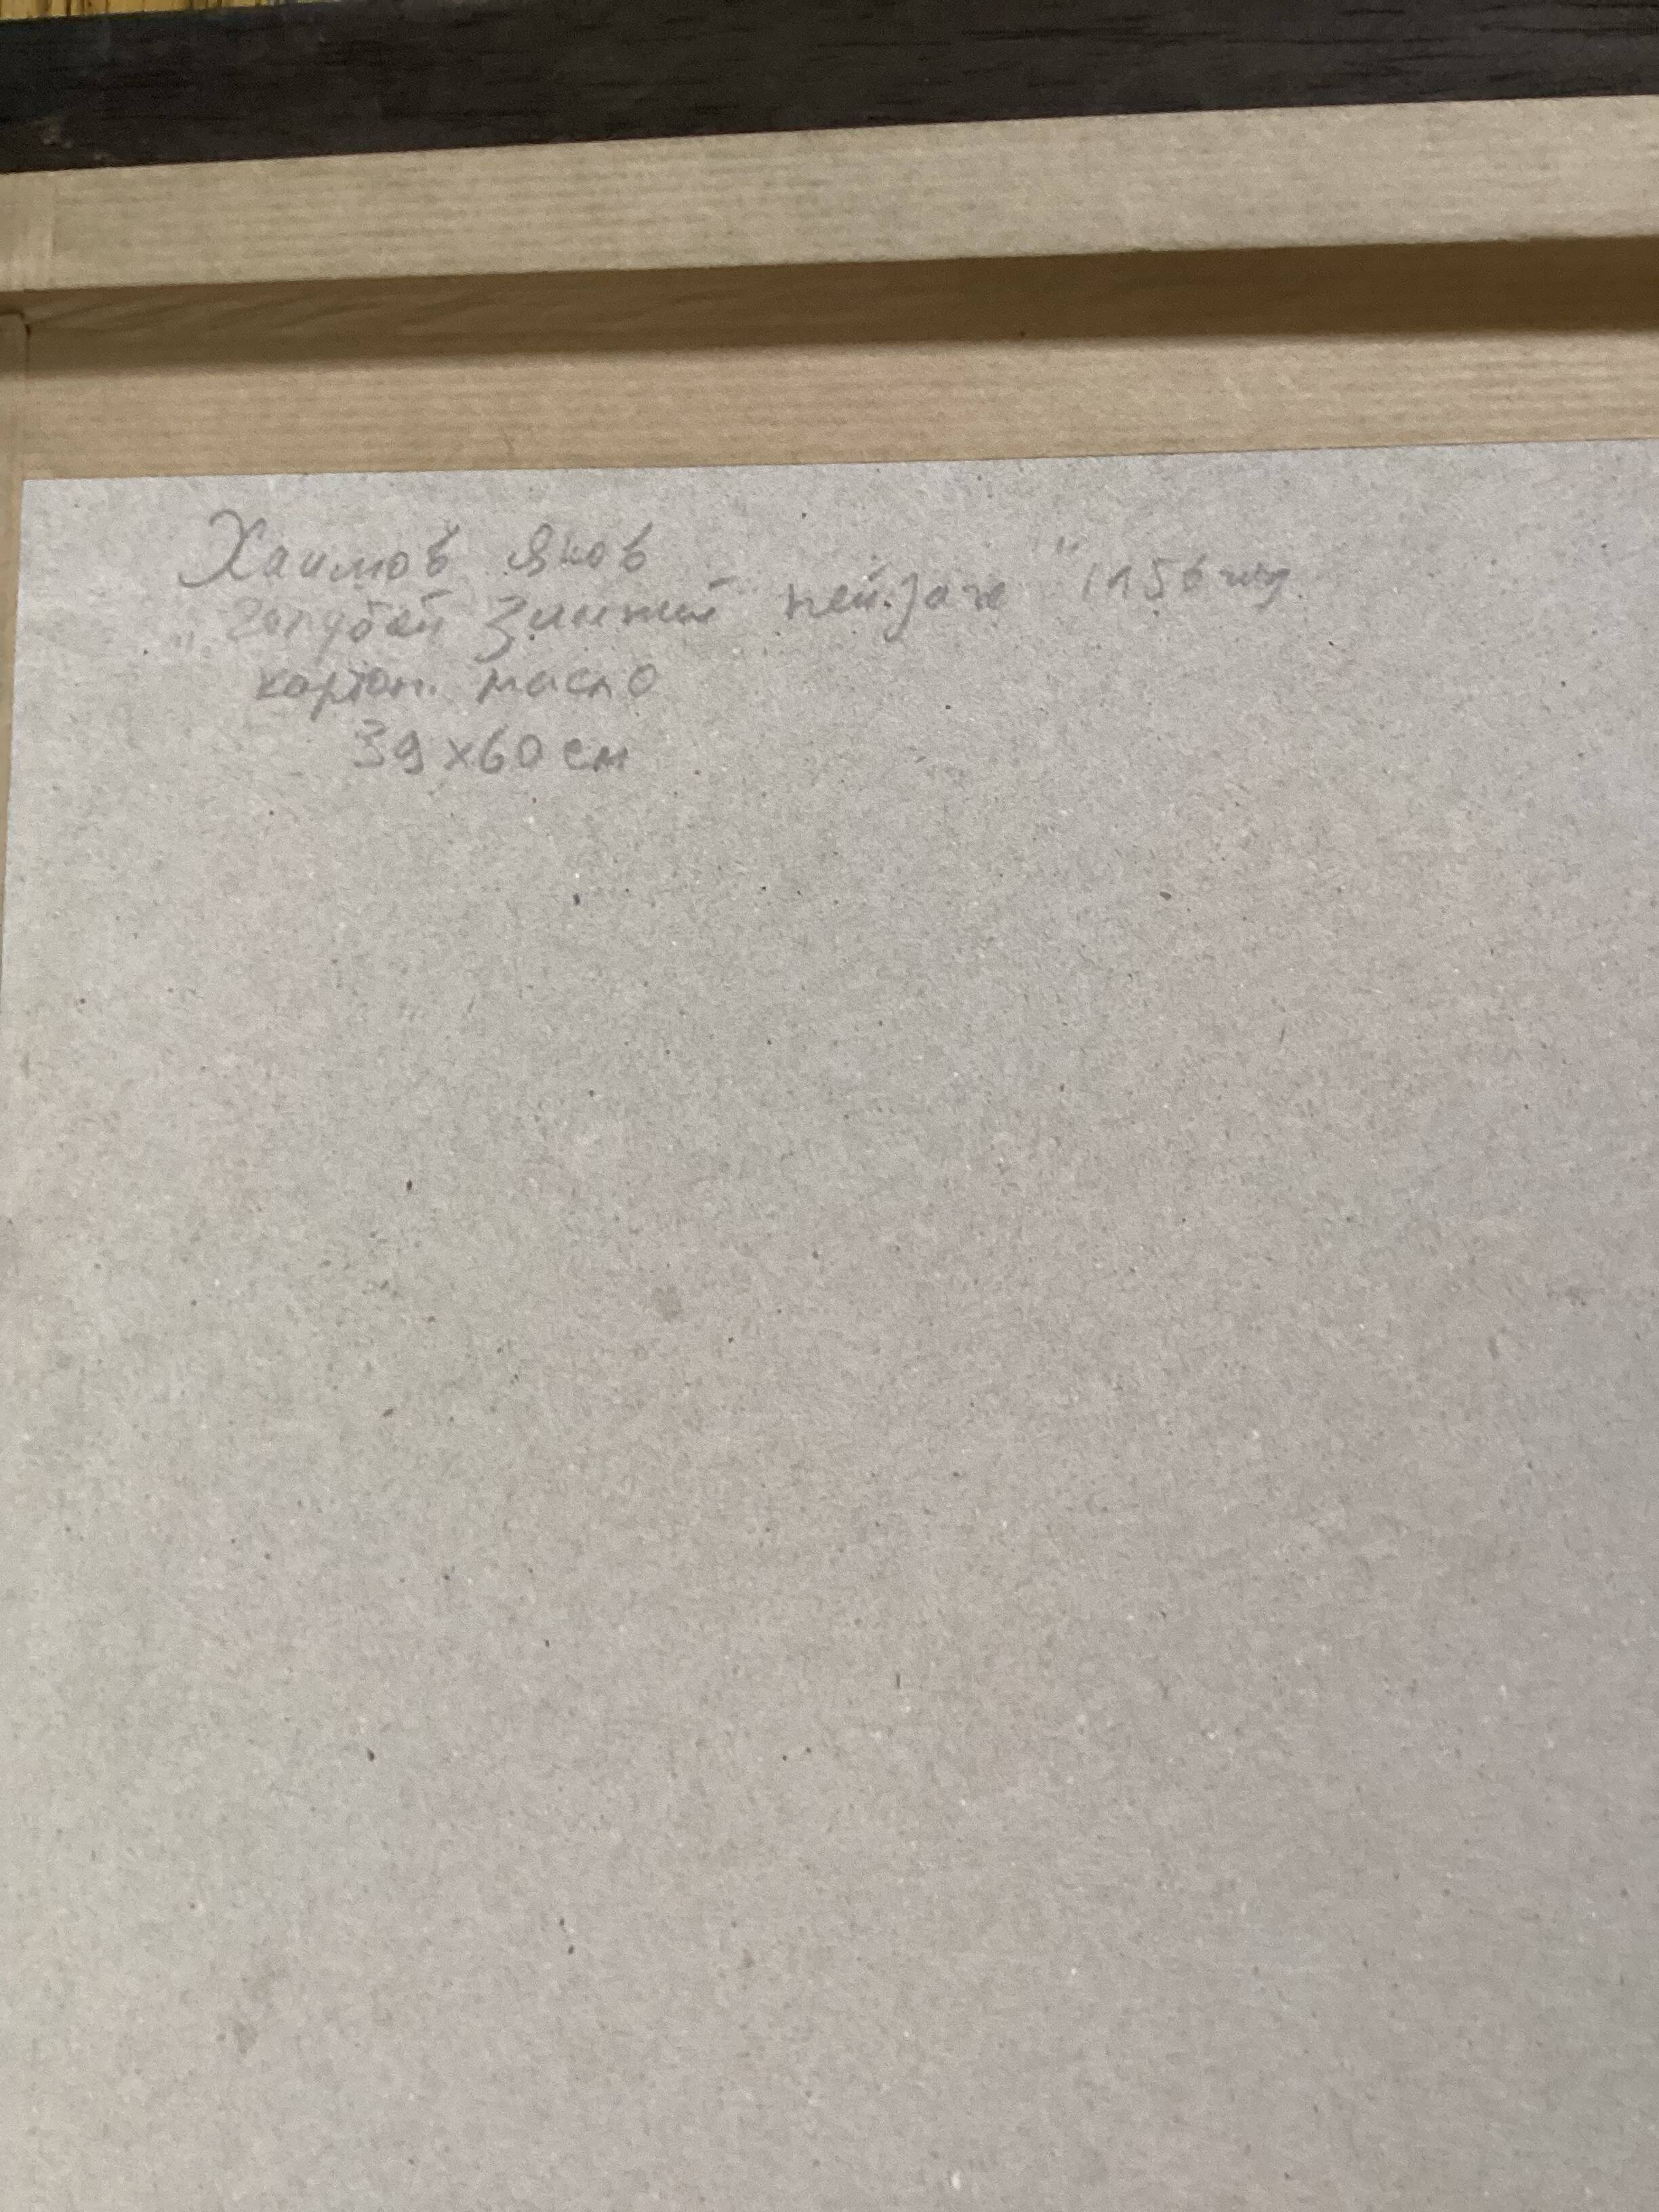 Хаимов Яков
„Голубой зимний пейзаж" 1956 год
картон. масло
39х60 см